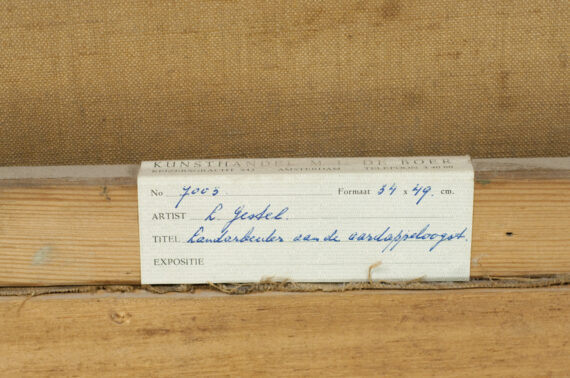 KUNSTHANDEL M. L. DE BOER
KEIZERSGRACHT 542 AMSTERDAM TELEFOON
No 7003. Formaat 34 x 49. cm.
ARTIST L. Gestel.
TITEL Landarbeuter aan de aardappeloogst.
EXPOSITIE